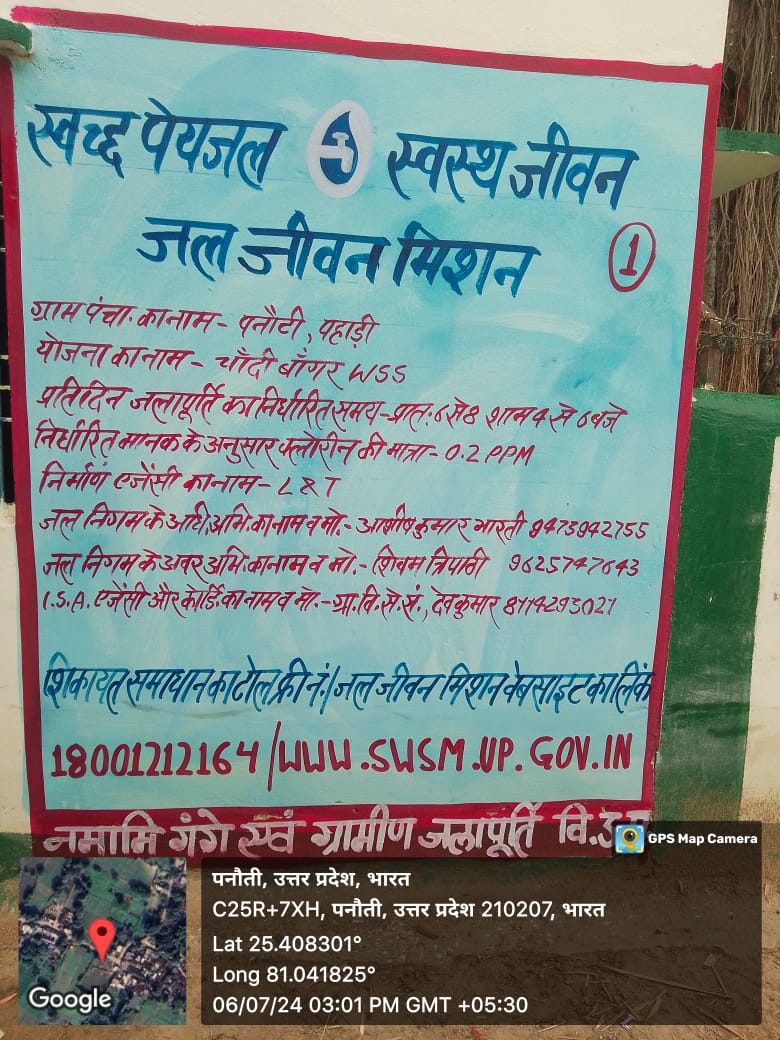 स्वच्छ पेयजल स्वस्थ जीवन
जल जीवन मिशन
1
ग्राम पंचा. का नाम - पनौटी, पहाड़ी
योजना का नाम - चाँदी बाँगर WSS
प्रतिदिन जलापूर्ति का निर्धारित समय - प्रातः 6 से 8 शाम 4 से 6 बजे
निर्धारित मानक के अनुसार क्लोरीन की मात्रा - 0.2 PPM
निर्माण एजेंसी का नाम - L&T
जल निगम के अधि. अभि. का नाम व मो. - आशीष कुमार भारती 9473942755
जल निगम के अवर अभि. का नाम व मो. - शिवम त्रिपाठी 9625747643
I.S.A. एजेंसी और कोर्डि. का नाम व मो. - ग्रा. वि. से. सं., देव कुमार
शिकायत समाधान का टोल फ्री नं. / जल जीवन मिशन वेबसाइट का लिंक
18001212164 / WWW.SWSM.UP.GOV.IN
नमामि गंगे एवं ग्रामीण जलापूर्ति वि.
GPS Map Camera
पनौती, उत्तर प्रदेश, भारत
C25R+7XH, पनौती, उत्तर प्रदेश 210207, भारत
Lat 25.408301°
Long 81.041825°
06/07/24 03:01 PM GMT +05:30
Google